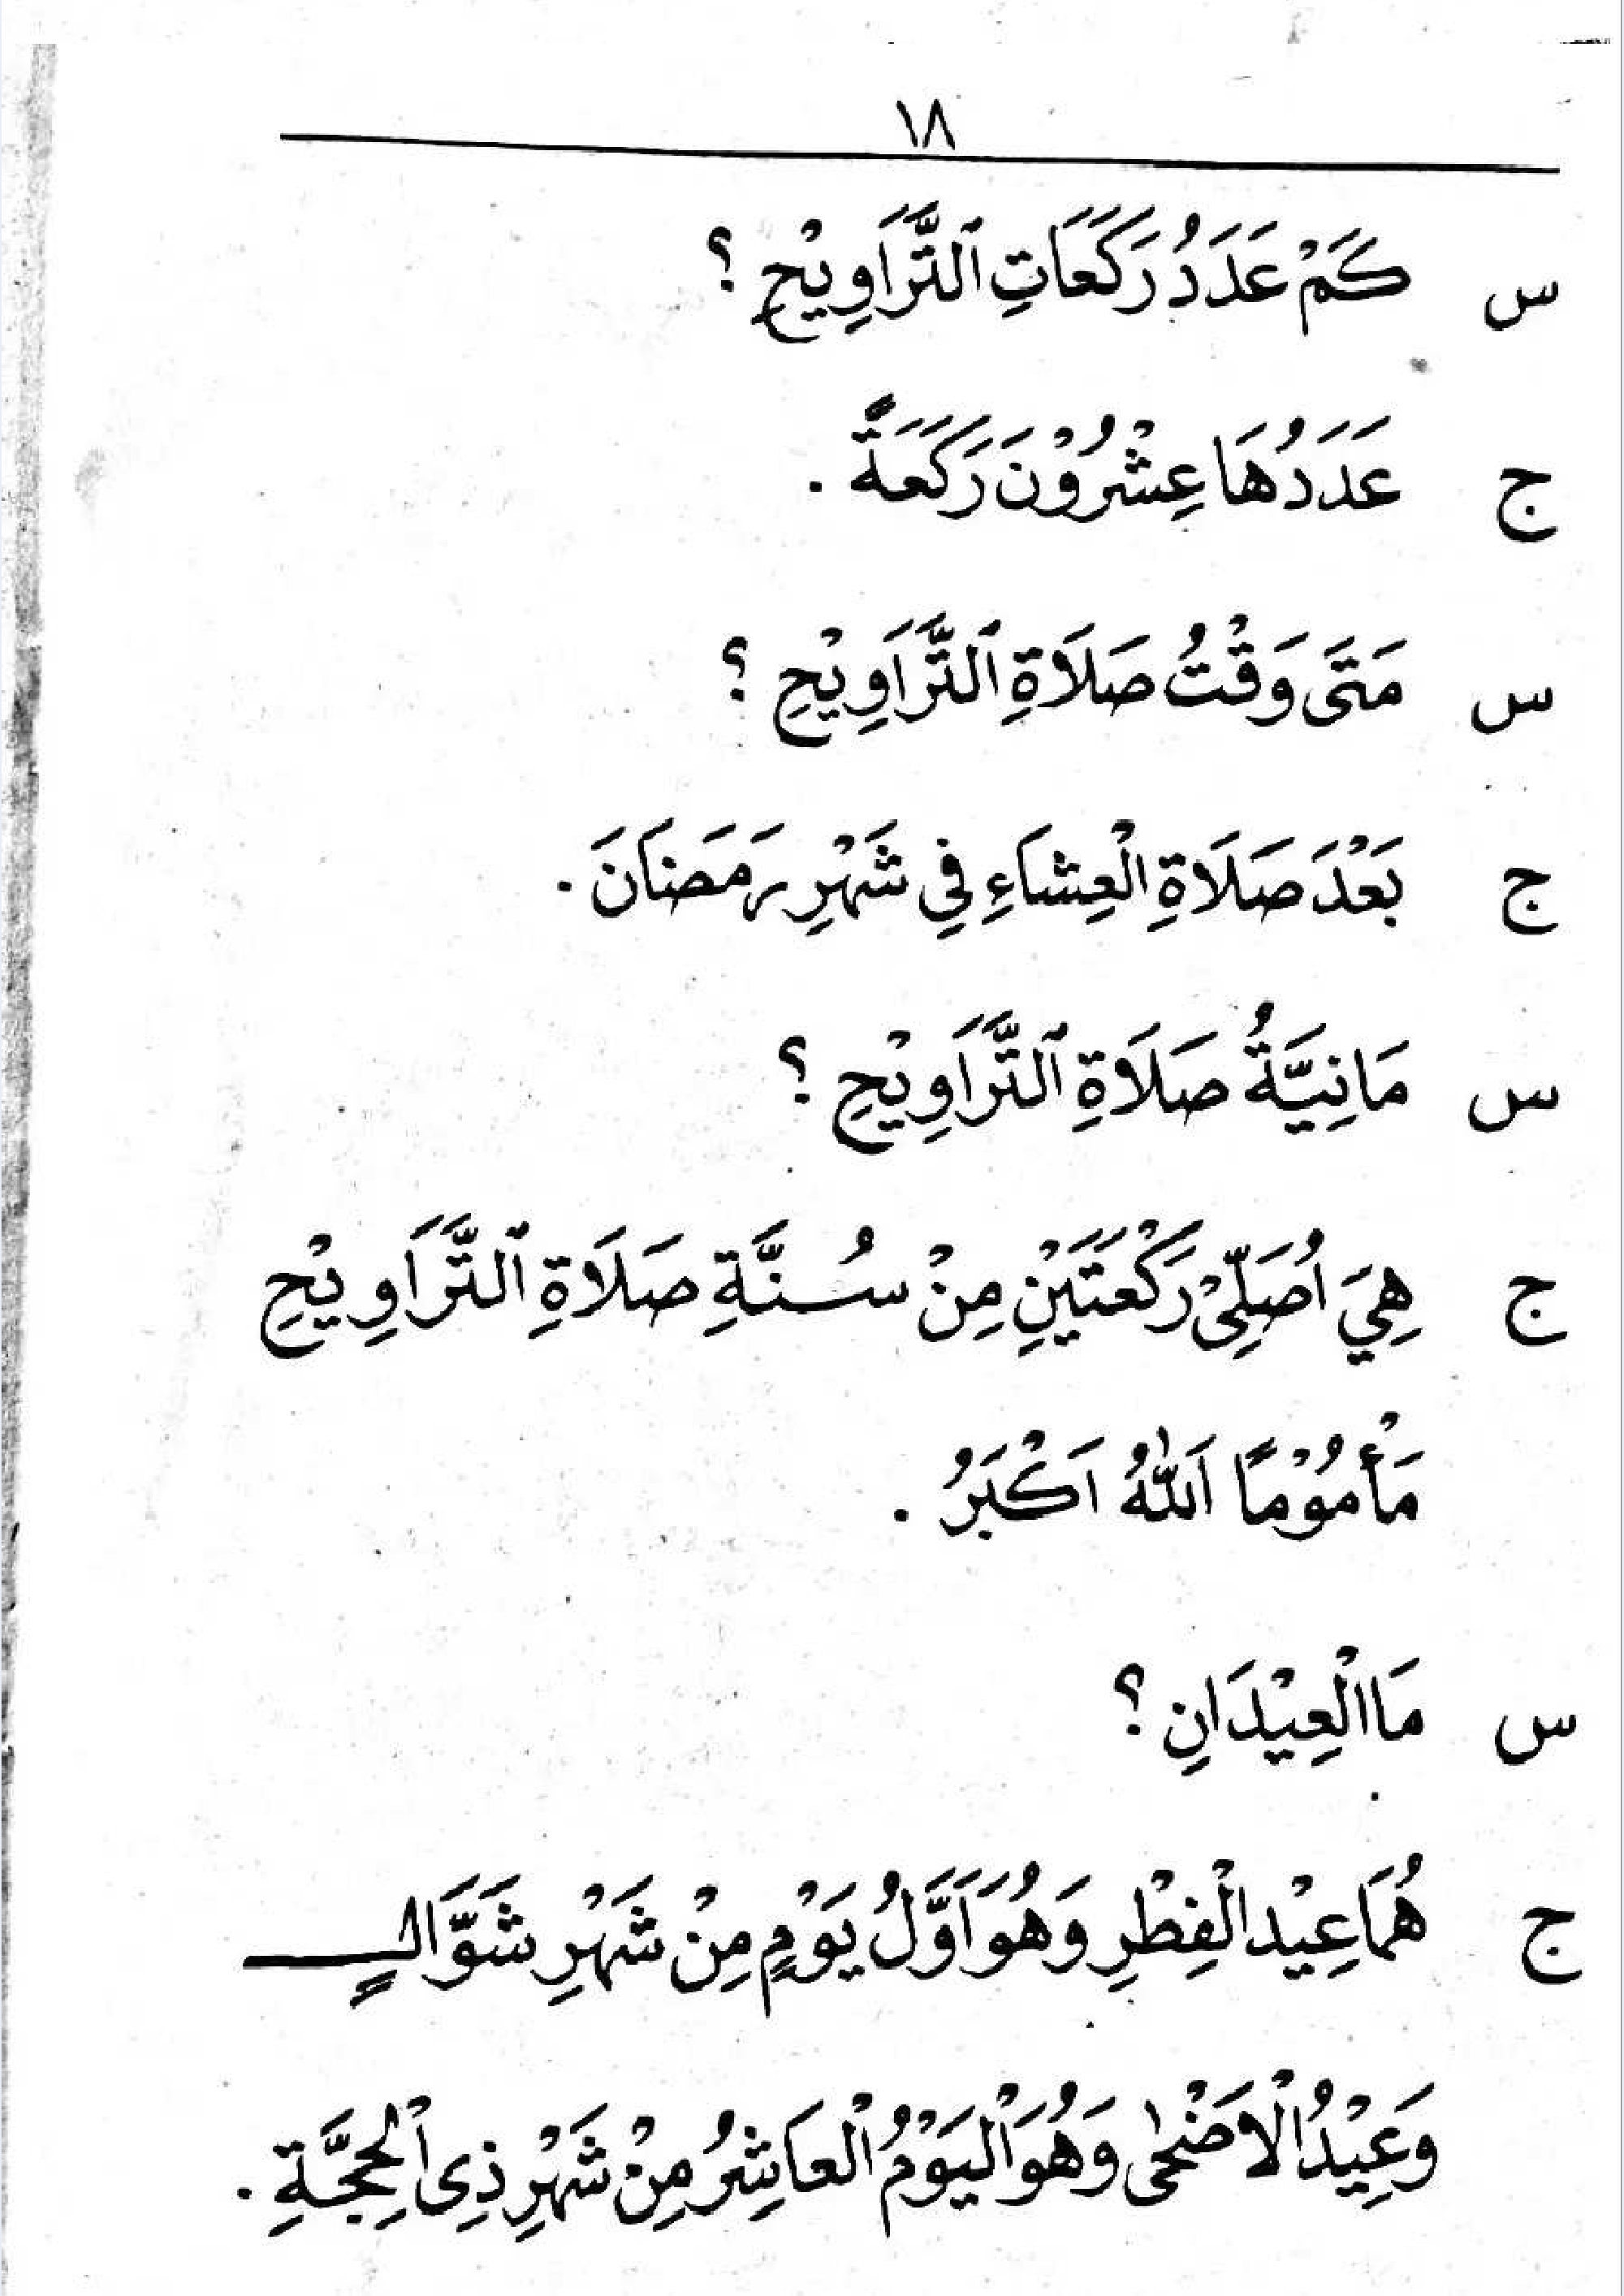 ١٨
س كَمْ عَدَدُ رَكَعَاتِ ٱلتَّرَاوِيْحِ ؟
ج عَدَدُهَا عِشْرُوْنَ رَكَعَةً .
س مَتَى وَقْتُ صَلَاةِ ٱلتَّرَاوِيْحِ ؟
ج بَعْدَ صَلَاةِ الْعِشَاءِ فِي شَهْرِ رَمَضَانَ .
س مَا نِيَّةُ صَلَاةِ ٱلتَّرَاوِيْحِ ؟
ج هِيَ اُصَلِّىْ رَكْعَتَيْنِ مِنْ سُنَّةِ صَلَاةِ ٱلتَّرَاوِيْحِ
مَأْمُوْمًا اَللّٰهُ اَكْبَرُ .
س مَا الْعِيْدَانِ ؟
ج هُمَا عِيْد الْفِطْرِ وَهُوَ اَوَّلُ يَوْمٍ مِنْ شَهْرِ شَوَّالٍ
وَعِيْدُ الْاَضْحٰى وَهُوَ الْيَوْمُ الْعَاشِرُ مِنْ شَهْرِ ذِى الْحِجَّةِ .